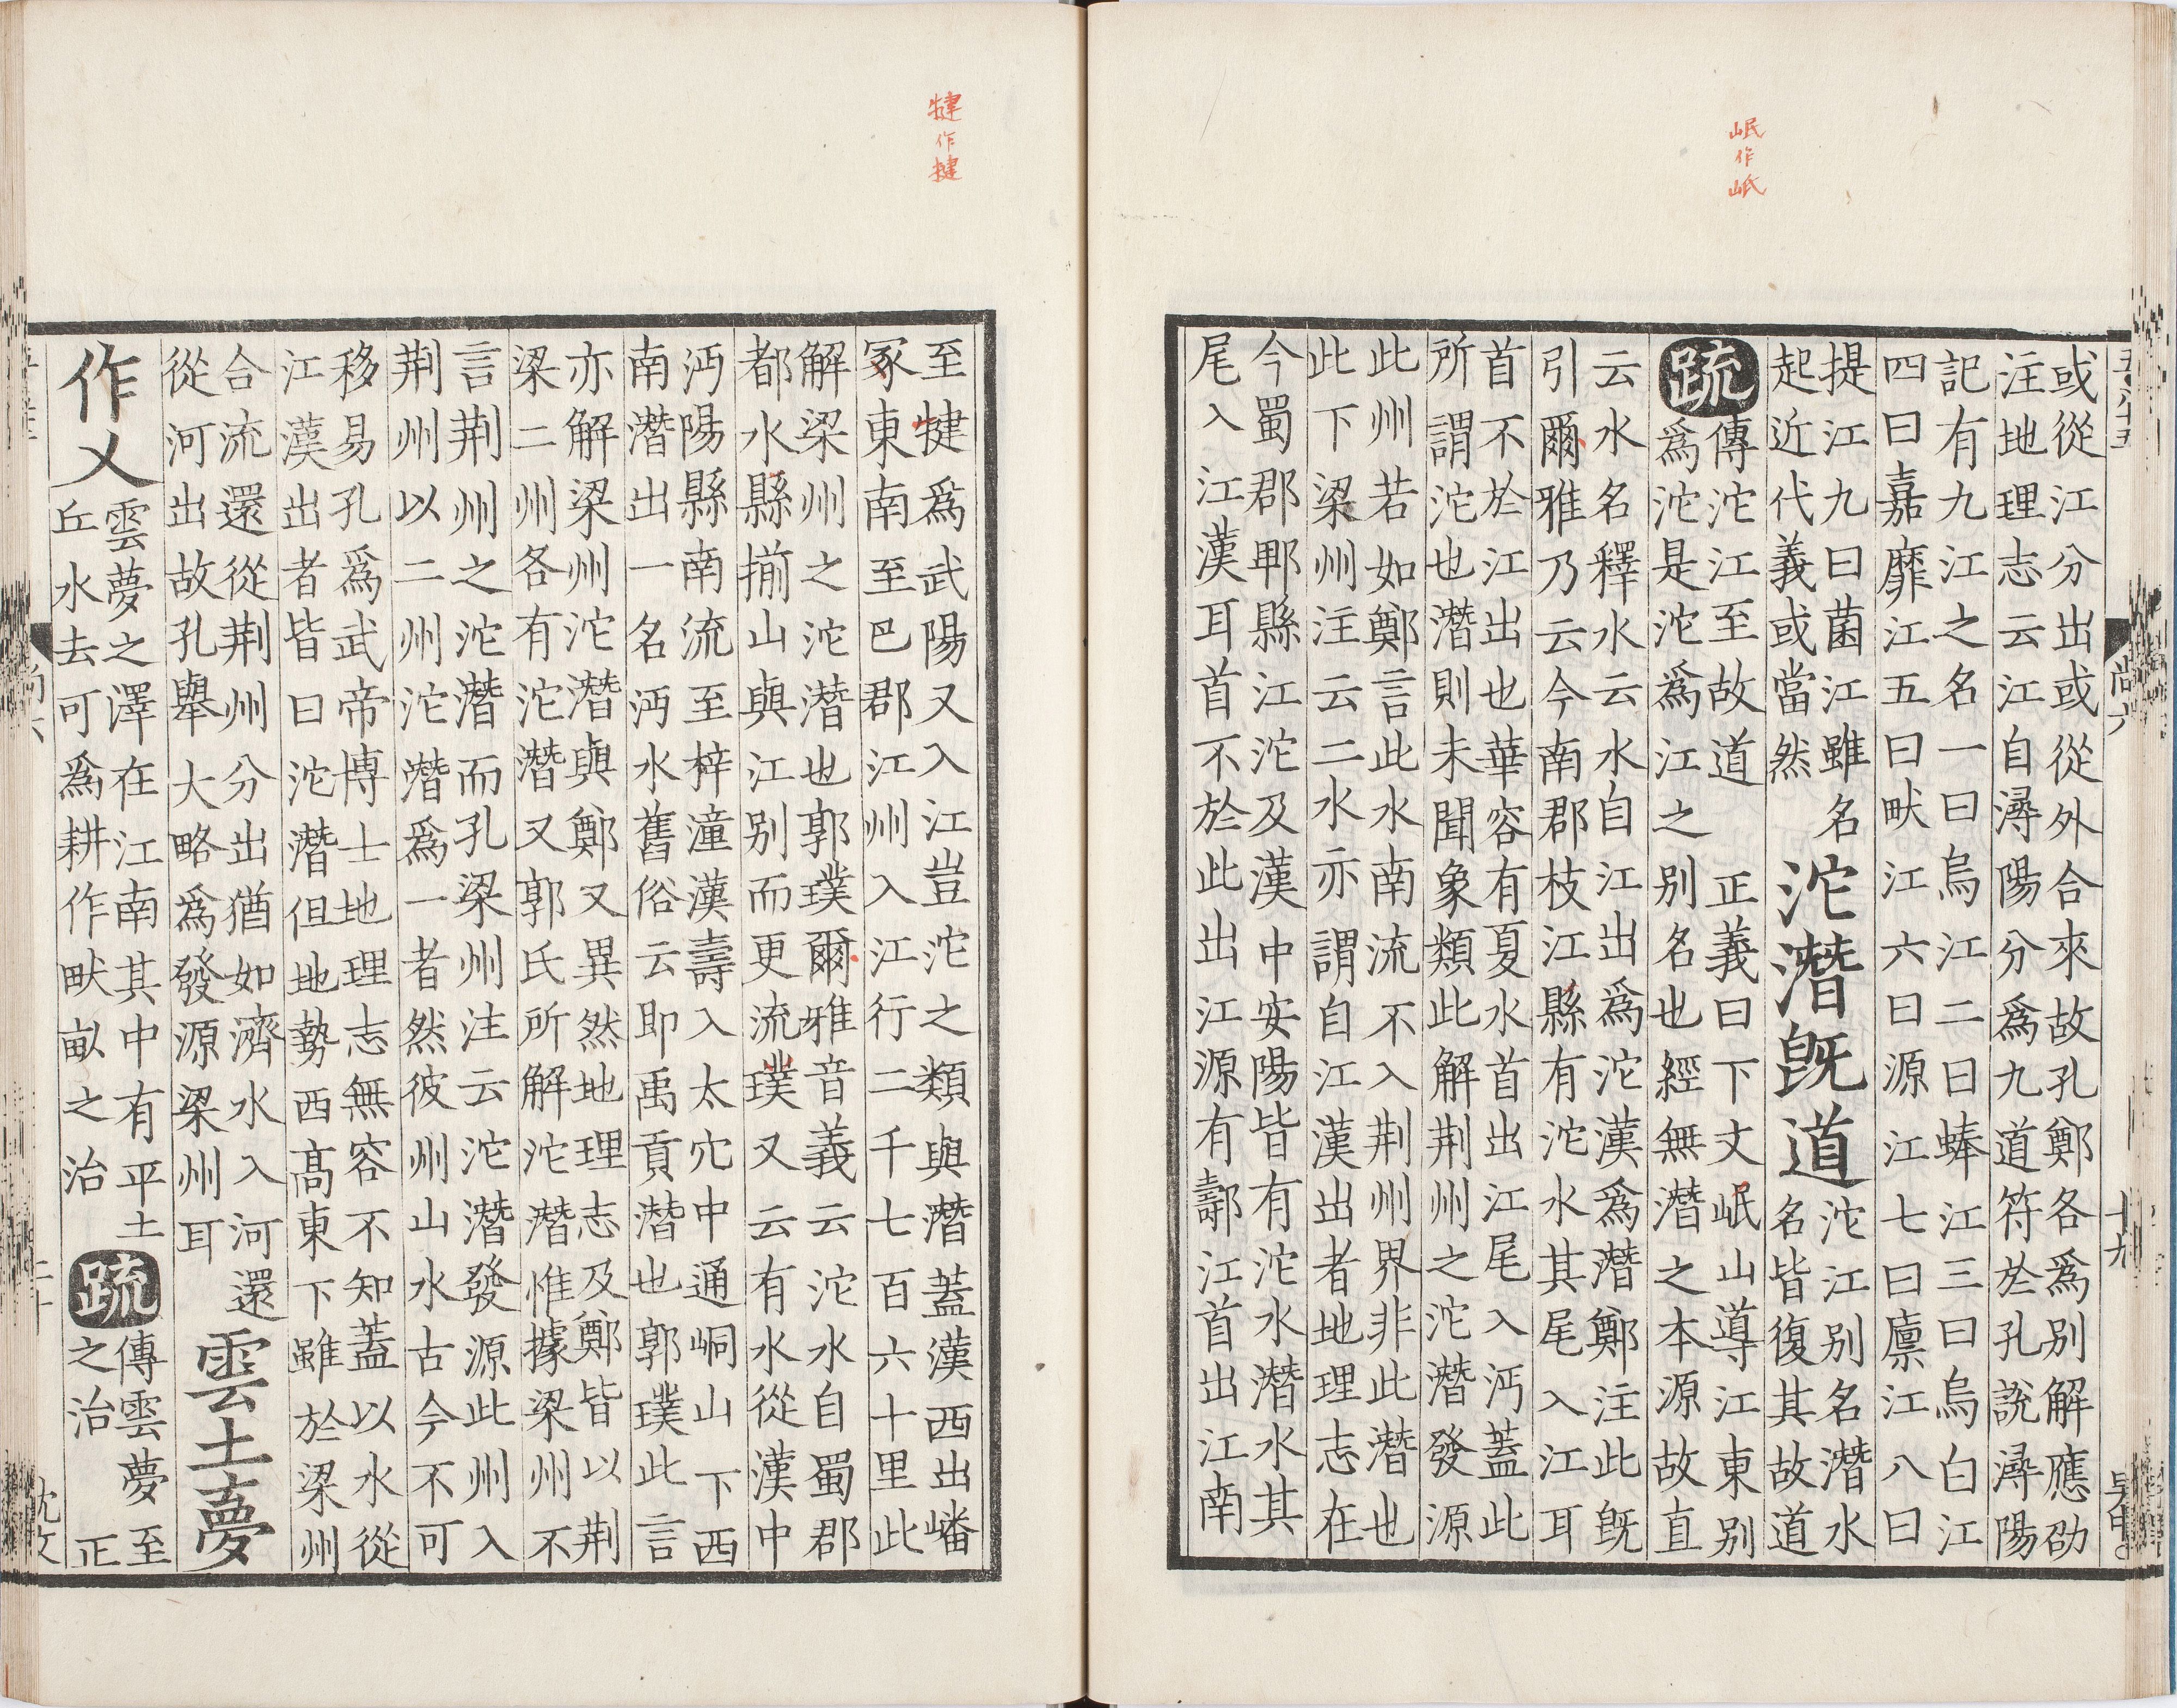 岷作㟭
或從江分出或從外合來故孔鄭各爲別解應劭
注地理志云江自潯陽分爲九道符於孔說潯陽
記有九江之名一曰烏江二曰蜯江三曰烏白江
四曰嘉靡江五曰畎江六曰源江七曰廩江八曰
提江九曰菌江雖名
起近代義或當然
沱潛旣道
沱江別名潛水
名皆復其故道
疏
傳沱江至故道 正義曰下文岷山導江東別
爲沱是沱爲江之別名也經無潛之本源故直
云水名釋水云水自江出爲沱漢爲潛鄭注此旣
引爾雅乃云今南郡枝江縣有沱水其尾入江耳
首不於江出也華容有夏水首出江尾入沔蓋此
所謂沱也潛則未聞象類此解荆州之沱潛發源
此州若如鄭言此水南流不入荆州界非此潛也
此下梁州注云二水亦謂自江漢出者地理志在
今蜀郡郫縣江沱及漢中安陽皆有沱水潛水其
尾入江漢耳首不於此出江源有䣕江首出江南
犍作揵
至犍爲武陽又入江豈沱之類與潛蓋漢西出嶓
冢東南至巴郡江州入江行二千七百六十里此
解梁州之沱潛也郭璞爾雅音義云沱水自蜀郡
都水縣揃山與江別而更流璞又云有水從漢中
沔陽縣南流至梓潼漢壽入太穴中通峒山下西
南潛出一名沔水舊俗云即禹貢潛也郭璞此言
亦解梁州沱潛與鄭又異然地理志及鄭皆以荆
梁二州各有沱潛又郭氏所解沱潛惟據梁州不
言荆州之沱潛而孔梁州注云沱潛發源此州入
荆州以二州沱潛爲一者然彼州山水古今不可
移易孔爲武帝博士地理志無容不知蓋以水從
江漢出者皆曰沱潛但地勢西高東下雖於梁州
合流還從荆州分出猶如濟水入河還
從河出故孔舉大略爲發源梁州耳
雲土夢
作乂
雲夢之澤在江南其中有平土
丘水去可爲耕作畎畝之治
疏
傳雲夢至
之治 正